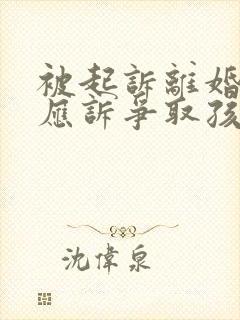 被起訴離婚
應訴爭取孩
沈偉泉